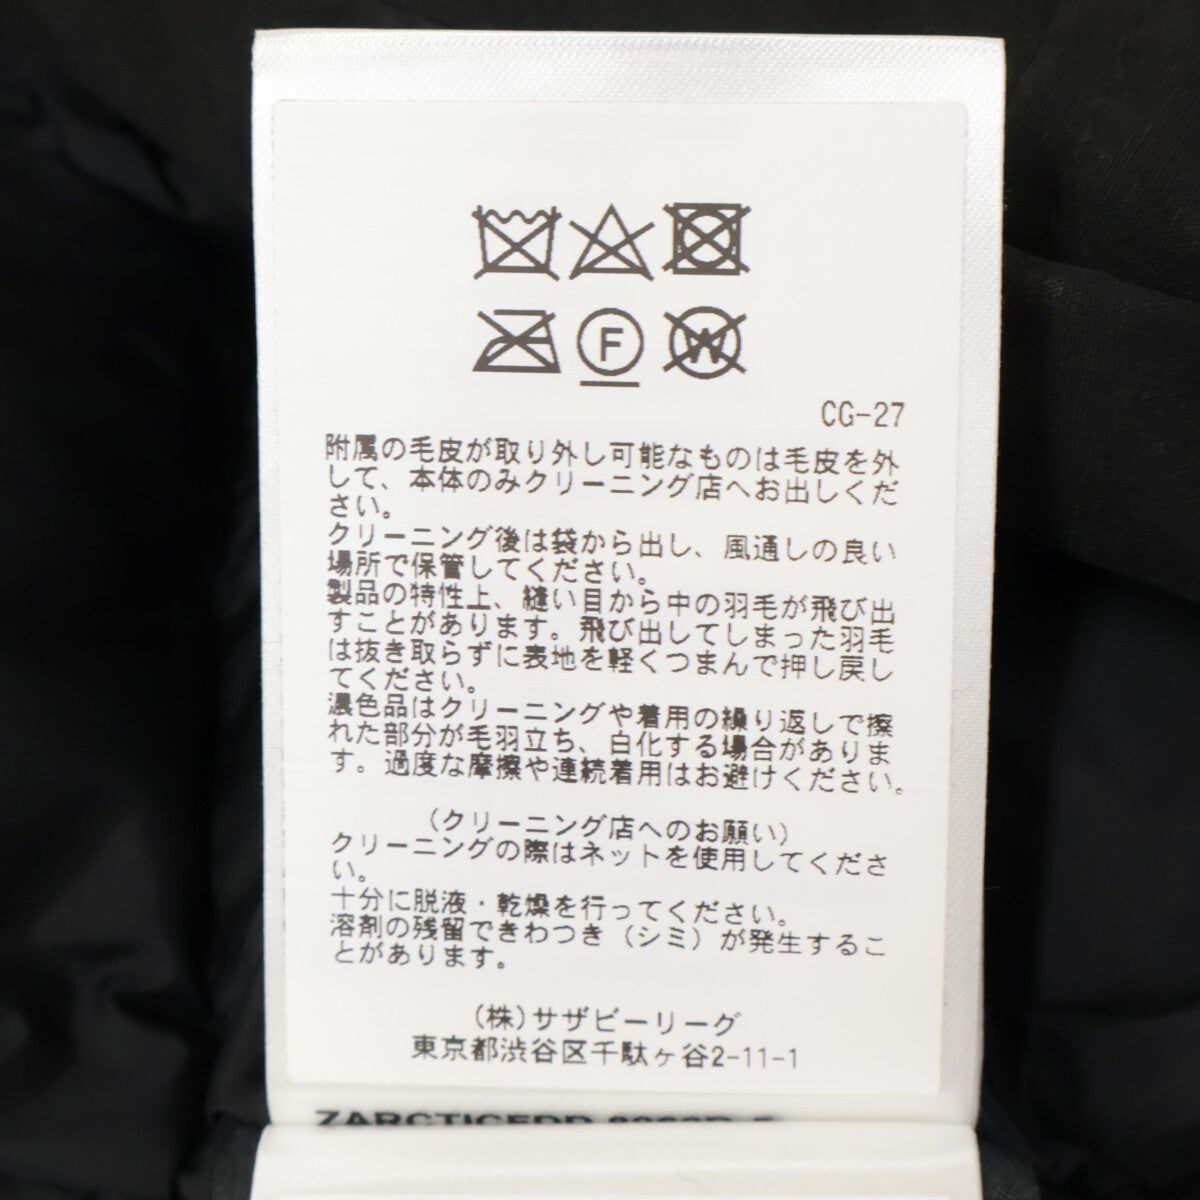 F
W
CG-27
附属の毛皮が取り外し可能なものは毛皮を外
して、本体のみクリーニング店へお出しくだ
さい。
クリーニング後は袋から出し、風通しの良い
場所で保管してください。
製品の特性上、縫い目から中の羽毛が飛び出
すことがあります。飛び出してしまった羽毛
は抜き取らずに表地を軽くつまんで押し戻し
てください。
濃色品はクリーニングや着用の繰り返しで擦
れた部分が毛羽立ち、白化する場合がありま
す。過度な摩擦や連続着用はお避けください。
(クリーニング店へのお願い)
クリーニングの際はネットを使用してくださ
い。
十分に脱液・乾燥を行ってください。
溶剤の残留できわつき(シミ)が発生するこ
とがあります。
(株)サザビーリーグ
東京都渋谷区千駄ヶ谷2-11-1